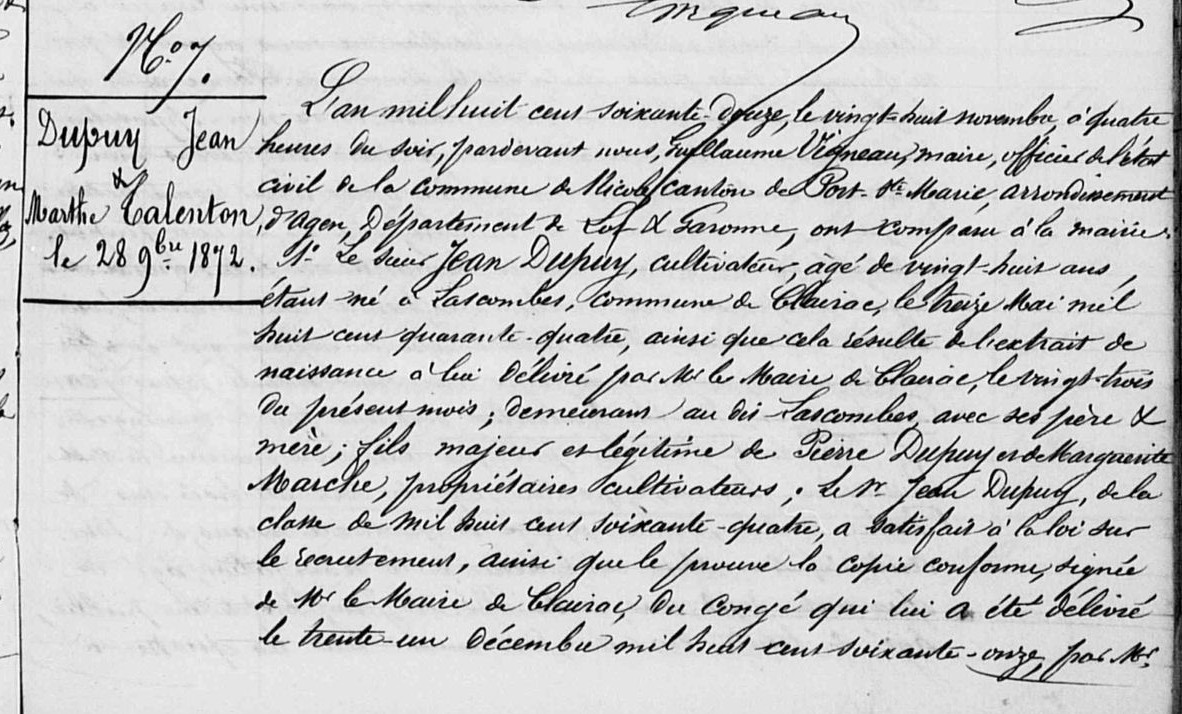 N.° 7.
Dupuy Jean
&
Marthe Talenton
le 28 9bre 1872
L'an mil huit cent soixante-douze, le vingt-huit novembre, à quatre
heures du soir, pardevant nous, Guillaume Vigneau, maire, officier de l'état
civil de la commune de Nicole, canton de Port-Ste-Marie, arrondissement
d'Agen, Département de Lot & Garonne, ont comparu à la mairie:
1°. Le sieur Jean Dupuy, cultivateur, âgé de vingt-huit ans,
étant né à Lascombes, commune de Clairac, le treize Mai mil
huit cent quarante-quatre, ainsi que cela résulte de l'extrait de
naissance à lui délivré par Mr le Maire de Clairac, le vingt-trois
du présent mois; demeurant au dit Lascombes, avec ses père &
mère; fils majeur et légitime de Pierre Dupuy et de Marguerite
Marche, propriétaires cultivateurs. Le Sr Jean Dupuy, de la
classe de mil huit cent soixante-quatre, a satisfait à la loi sur
le recrutement, ainsi que le prouve la copie conforme, signée
de Mr le Maire de Clairac, du Congé qui lui a été délivré
le trente-un Décembre mil huit cent soixante-onze, par Mr